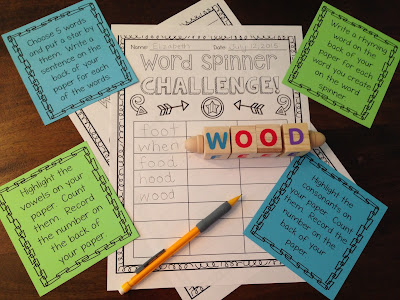 Choose 5 words
and put a star by
them. Write a
sentence on the
back of your
paper for each
of the words.
Write a rhyming
word on the
back of your
paper for each
word you create
on the word
spinner.
Name: Elizabeth Date: July 12, 2015
Word Spinner
CHALLENGE!
foot
when
food
hood
wood
WOOD
Highlight the
vowels on your
paper. Count
them. Record
the number on
the back of
your paper
Highlight the
consonants on
your paper. Count
them. Record the
number on the
back of your
paper.